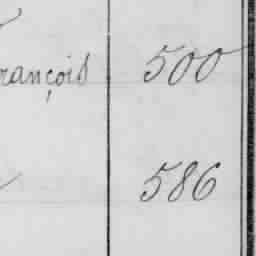 rançois 500
586